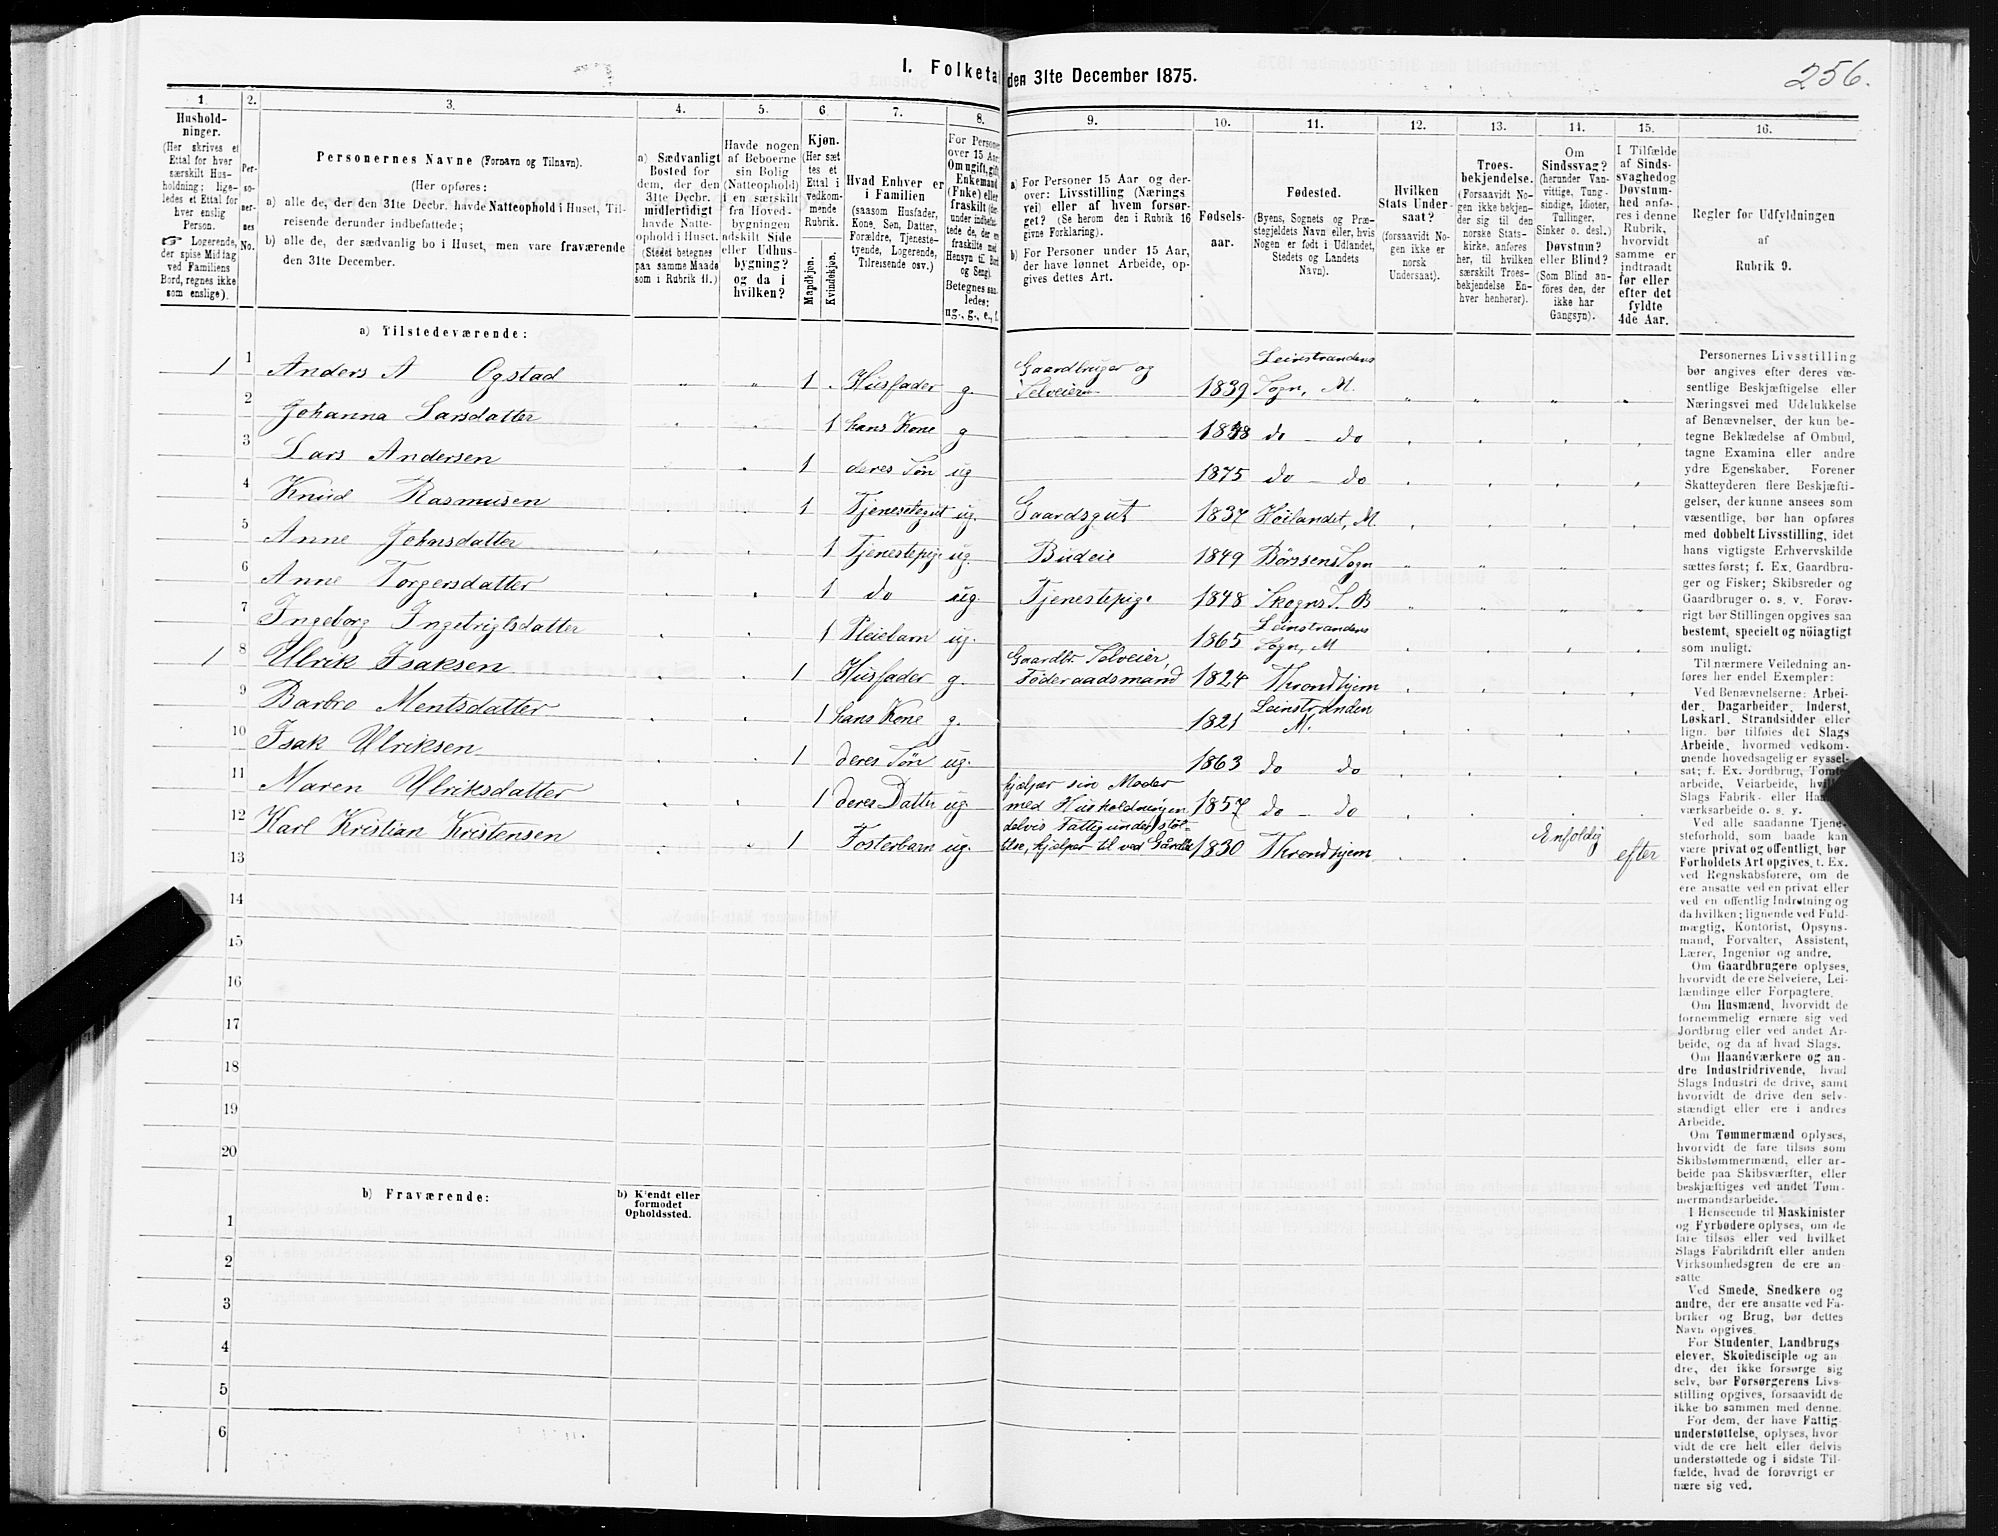 256.
I. Folketal den 31te December 1875.
1. 2. 3. 4. 5. 6. 7. 8. 9. 10. 11. 12. 13. 14. 15. 16.
Husholdninger.
(Her skrives et Ettal for hver særskilt Husholdning; ligeledes et Ettal for hver enslig Person.
☞ Logerende, der spise Middag ved Familiens Bord, regnes ikke som enslige).
Personernes No.
Personernes Navne (Fornavn og Tilnavn).
(Her opføres:
a) alle de, der den 31te Decbr. havde Natteophold i Huset, Tilreisende derunder indbefattede;
b) alle de, der sædvanlig bo i Huset, men vare fraværende den 31te December.
a) Sædvanligt Bosted for dem, der den 31te Decbr. midlertidigt havde Natteophold i Huset. (Stedet betegnes paa samme Maade som i Rubrik 11.)
Havde nogen af Beboerne sin Bolig (Natteophold) i en særskilt fra Hovedbygningen adskilt Side eller Udhusbygning? og da i hvilken?
Kjøn. (Her sættes et Ettal i vedkommende Rubrik.
Mandkjøn. Kvindekjøn.
Hvad Enhver er i Familien (saasom Husfader, Kone, Søn, Datter, Forældre, Tjenestetyende, Logerende, Tilreisende osv.)
For Personer over 15 Aar: Om ugift, gift, Enkemand (Enke) eller fraskilt
Betegnes saaledes: ug., g., e., f.
a) For Personer 15 Aar og derover: Livsstilling (Næringsvei) eller af hvem forsørget? (Se herom den i Rubrik 16 givne Forklaring).
b) For Personer under 15 Aar, der have lønnet Arbeide, opgives dettes Art.
Fødselsaar.
Fødested.
(Byens, Sognets og Præstegjeldets Navn eller, hvis Nogen er født i Udlandet, Stedets og Landets Navn).
Hvilken Stats Undersaat?
(forsaavidt Nogen ikke er norsk Undersaat).
Troesbekjendelse.
(Forsaavidt Nogen ikke bekjender sig til den norske Statskirke, anføres her, til hvilken særskilt Troesbekjendelse Enhver henhører).
Om Sindssvag? (herunder Vanvittige, Tungsindige, Idioter, Tullinger, Sinker o. desl.) Døvstum? eller Blind? (Som Blind anføres den, der ikke har Gangsyn).
I Tilfælde af Sindssvaghed og Døvstumhed anføres i denne Rubrik, hvorvidt samme er indtraadt før eller efter det fyldte 4de Aar.
Regler for Udfyldningen af Rubrik 9.
a) Tilstedeværende:
1 1 Anders A Ogstad " " 1 . Husfader g. Gaardbruger og Selveier 1839 Leinstrandens Sogn, M. " " " "
2 Johanna Larsdatter 1 hans Kone g 1838 do – do
3 Lars Andersen 1 deres Søn ug 1875 do – do
4 Knud Rasmusen 1 Tjenestegut ug. Gaardsgut 1837 Høilandet, M.
5 Anne Johnsdatter 1 Tjenestepige ug. Budeie 1849 Børssens Sogn
6 Anne Torgersdatter 1 do ug. Tjenestepige 1848 Skogns S. B
7 Ingeborg Ingebrigtsdatter 1 Pleiebarn ug. 1865 Leinstrandens Sogn, M
1 8 Ulrik Isaksen 1 Husfader g. Gaardbr. Selveier, Føderaadsmand 1824 Throndhjem
9 Barbro Mentsdatter 1 hans Kone g. 1821 Leinstranden M.
10 Isak Ulriksen 1 deres Søn ug. 1863 do do
11 Maren Ulriksdatter 1 deres Datter ug. hjælper sin Moder med Husholdningen 1857 do – do
12 Karl Kristian Kristensen 1 Fosterbarn ug. delvis Fattigunderstøttelse, hjælper til ved Gården 1830 Throndhjem Enfoldig efter
13
14
15
16
17
18
19
20
b) Fraværende:
b) Kjendt eller formodet Opholdssted.
1
2
3
4
5
6
Personernes Livsstilling
bør angives efter deres væsentlige Beskjæftigelse eller
Næringsvei med Udelukkelse
af Benævnelser, der kun betegne Beklædelse af Ombud,
tagne Examina eller andre
ydre Egenskaber. Forener
Skatteyderen flere Beskjæftigelser, der kunne ansees som
væsentlige, bør han opføres
med dobbelt Livsstilling, idet
hans vigtigste Erhvervskilde
sættes først; f. Ex. Gaardbruger og Fisker; Skibsreder og
Gaardbruger o. s. v. Forøvrigt bør Stillingen opgives saa
bestemt, specielt og nøiagtigt
som muligt.
Til nærmere Veiledning anføres her endel Exempler:
Ved Benævnelserne: Arbeider, Dagarbeider, Inderst,
Løskarl, Strandsidder eller
lign. bør tilføies det Slags
Arbeide, hvormed vedkommende hovedsagelig er sysselsat; f. Ex. Jordbrug, Tomtearbeide, Veiarbeide, hvilket
Slags Fabrik- eller Haandværksarbeide o. s. v.
Ved alle saadanne Tjenesteforhold, som baade kan
være privat og offentligt, bør
Forholdets Art opgives, t. Ex.
ved Regnskabsførere, om de
ere ansatte ved en privat eller
ved en offentlig Indretning og
da hvilken; lignende ved Fuldmægtig, Kontorist, Opsynsmand, Forvalter, Assistent,
Lærer, Ingeniør og andre.
Om Gaardbrugere oplyses,
hvorvidt de ere Selveiere, Leilændinge eller Forpagtere.
Om Husmænd, hvorvidt de
fornemmelig ernære sig ved
Jordbrug eller ved andet Arbeide, og da af hvad Slags.
Om Haandværkere og andre Industridrivende, hvad
Slags Industri de drive, samt
hvorvidt de drive den selvstændigt eller ere i andres
Arbeide.
Om Tømmermænd oplyses,
hvorvidt de fare tilsøs som
Skibstømmermænd, eller arbeide paa Skibsværfter, eller
beskjæftiges ved andet Tømmermandsarbeide.
I Henseende til Maskinister
og Fyrbødere oplyses, om de
fare tilsøs eller ved hvilket
Slags Fabrikdrift eller anden
Virksomhedsgren de ere ansatte.
Ved Smede, Snedkere og
andre, der ere ansatte ved Fabriker og Brug, bør dettes
Navn opgives.
For Studenter, Landbrugselever, Skoledisciple og andre, der ikke forsørge sig
selv, bør Forsørgerens Livsstilling opgives, forsaavidt de
ikke bo sammen med denne.
For dem, der have Fattigunderstøttelse, oplyses, hvorvidt de ere helt eller delvis
understøttede og i sidste Tilfælde, hvad de forøvrigt ernære sig ved.